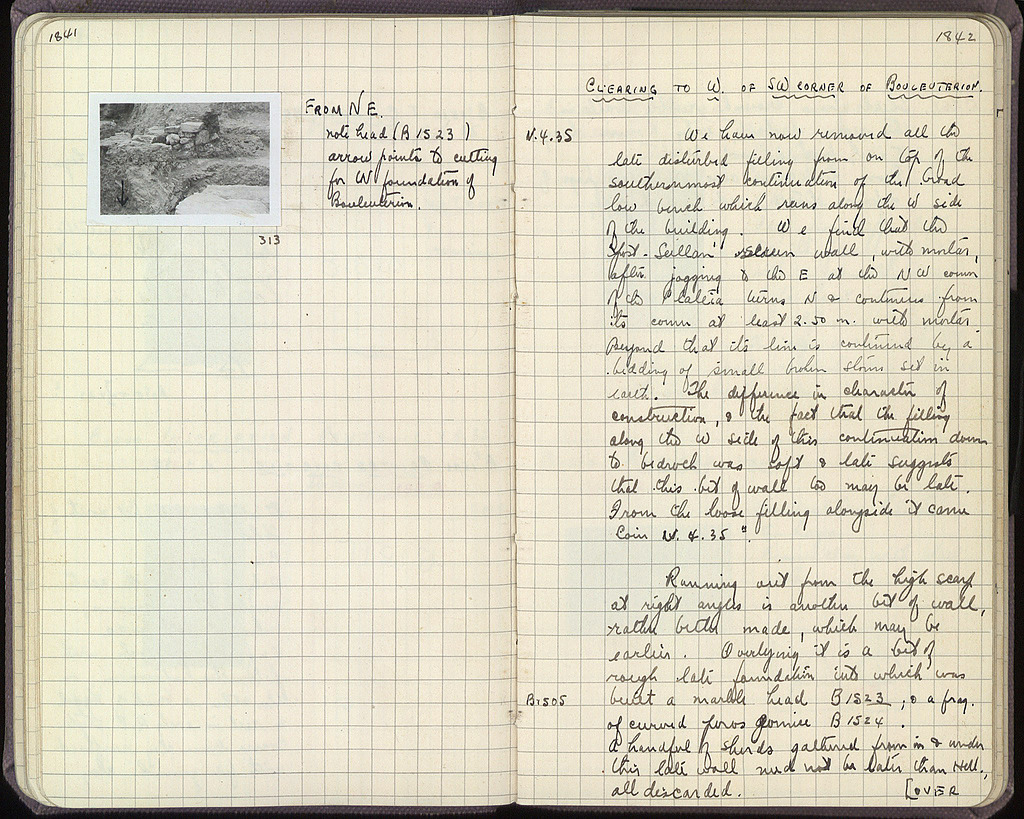 1841
FROM N E.
note head (B 1523)
arrow points to cutting
for W foundation of
Bouleuterion.
313
1842
CLEARING TO W. OF SW CORNER OF BOULEUTERION.
N.4.35 We have now removed all the
late disturbed filling from on top of the
southernmost continuation of the broad
low bench which runs along the W side
of the building. We find that the
wall, with mortar,
after jogging to the E at the NW corner
of the turns N & continues from
its corner at least 2.50 m. with mortar.
Beyond that its line is continued by a
bedding of small broken stones set in
earth. The difference in character of
construction, & the fact that the filling
along the W side of this continuation down
to bedrock was soft & late suggests
that this bit of wall too may be late.
From the loose filling alongside it came
Coin 4.35
Running out from the high scarp
at right angles is another bit of wall,
rather better made, which may be
earlier. Overlying it is a bit of
rough late foundation into which was
built a marble head B 1523; & a frag.
of curved poros B 1524.
A handful of sherds gathered from in & under
this late wall need not be later than Hell.,
all discarded. [OVER